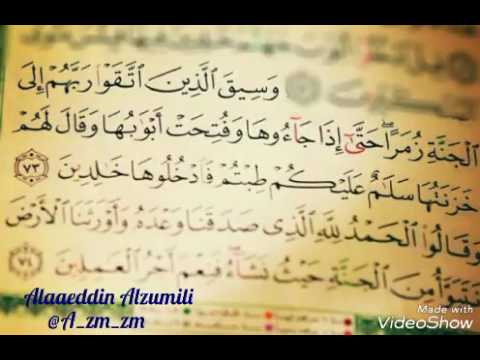 وَسِيقَ الَّذِينَ اتَّقَوْا رَبَّهُمْ إِلَى
الْجَنَّةِ زُمَرًا حَتَّىٰ إِذَا جَاءُوهَا وَفُتِحَتْ أَبْوَابُهَا وَقَالَ لَهُمْ
خَزَنَتُهَا سَلَامٌ عَلَيْكُمْ طِبْتُمْ فَادْخُلُوهَا خَالِدِينَ ٧٣
وَقَالُوا الْحَمْدُ لِلَّهِ الَّذِي صَدَقَنَا وَعْدَهُ وَأَوْرَثَنَا الْأَرْضَ
نَتَبَوَّأُ مِنَ الْجَنَّةِ حَيْثُ نَشَاءُ فَنِعْمَ أَجْرُ الْعَامِلِينَ ٧٤
Alaaeddin Alzumili
@A_zm_zm
Made with
VideoShow